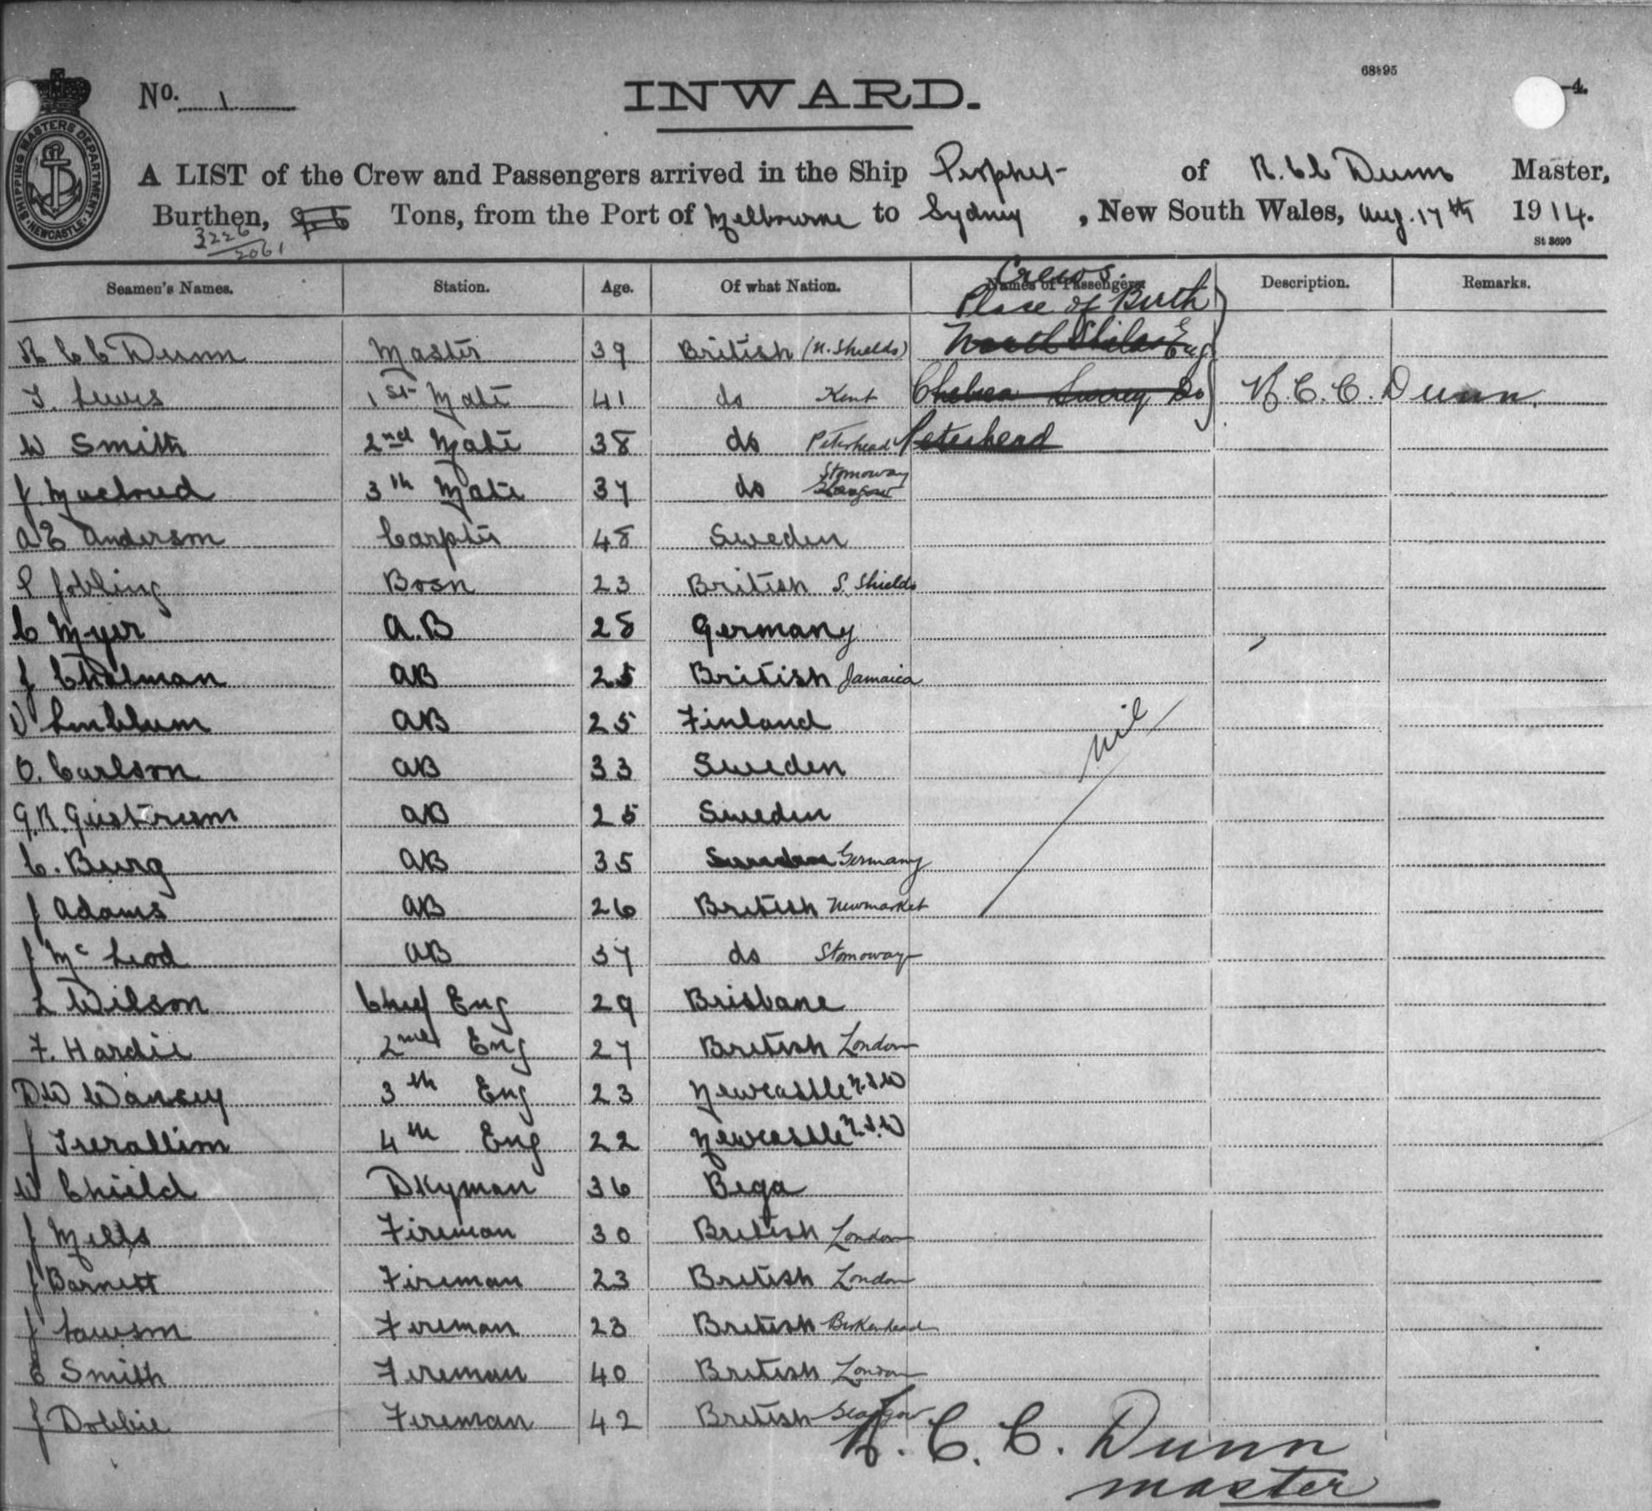 68895
No. 1 INWARD. 4.
SHIPPING MASTERS DEPARTMENT NEWCASTLE
A LIST of the Crew and Passengers arrived in the Ship Prophet of R. C C Dunn Master,
Burthen, Tons, from the Port of Melbourne to Sydney, New South Wales, Aug. 17th 1914.
3226
2061
St 3690
Seamen's Names. Station. Age. Of what Nation. Names of Passengers. Description. Remarks.
Crews.
Place of Birth
R C C Dunn Master 39 British (N. Shields) North Shields Eng
T. Lewis 1st Mate 41 do Kent Chelsea Surrey Do R. C. C. Dunn.
W Smith 2nd Mate 38 do Peterhead Peterhead
J. Macloud 3th Mate 37 do Stornoway Glasgow
A E Anderson Carptr 48 Sweden
Jobling Bosn 23 British S. Shields
C Myer A.B 28 Germany
J Cholman AB 25 British Jamaica
AB 25 Finland
nil
O. Carlson AB 33 Sweden
G.R. Gustrum AB 25 Sweden
C. Burg AB 35 Germany
J Adams AB 26 British Newmarket
J Mc Leod AB 37 do Stornoway
L Wilson Chief Eng 29 Brisbane
F. Hardie 2nd Eng 27 British London
D.W Wansey 3th Eng 23 Newcastle N.S.W
J 4th Eng 22 Newcastle N.S.W
W Child Dkyman 36 Bega
J Mills Fireman 30 British London
J Barnett Fireman 23 British London
J Lawson Fireman 23 British Birkenhead
E Smith Fireman 40 British London
J Dobbie Fireman 42 British Glasgow
R. C. C. Dunn
master